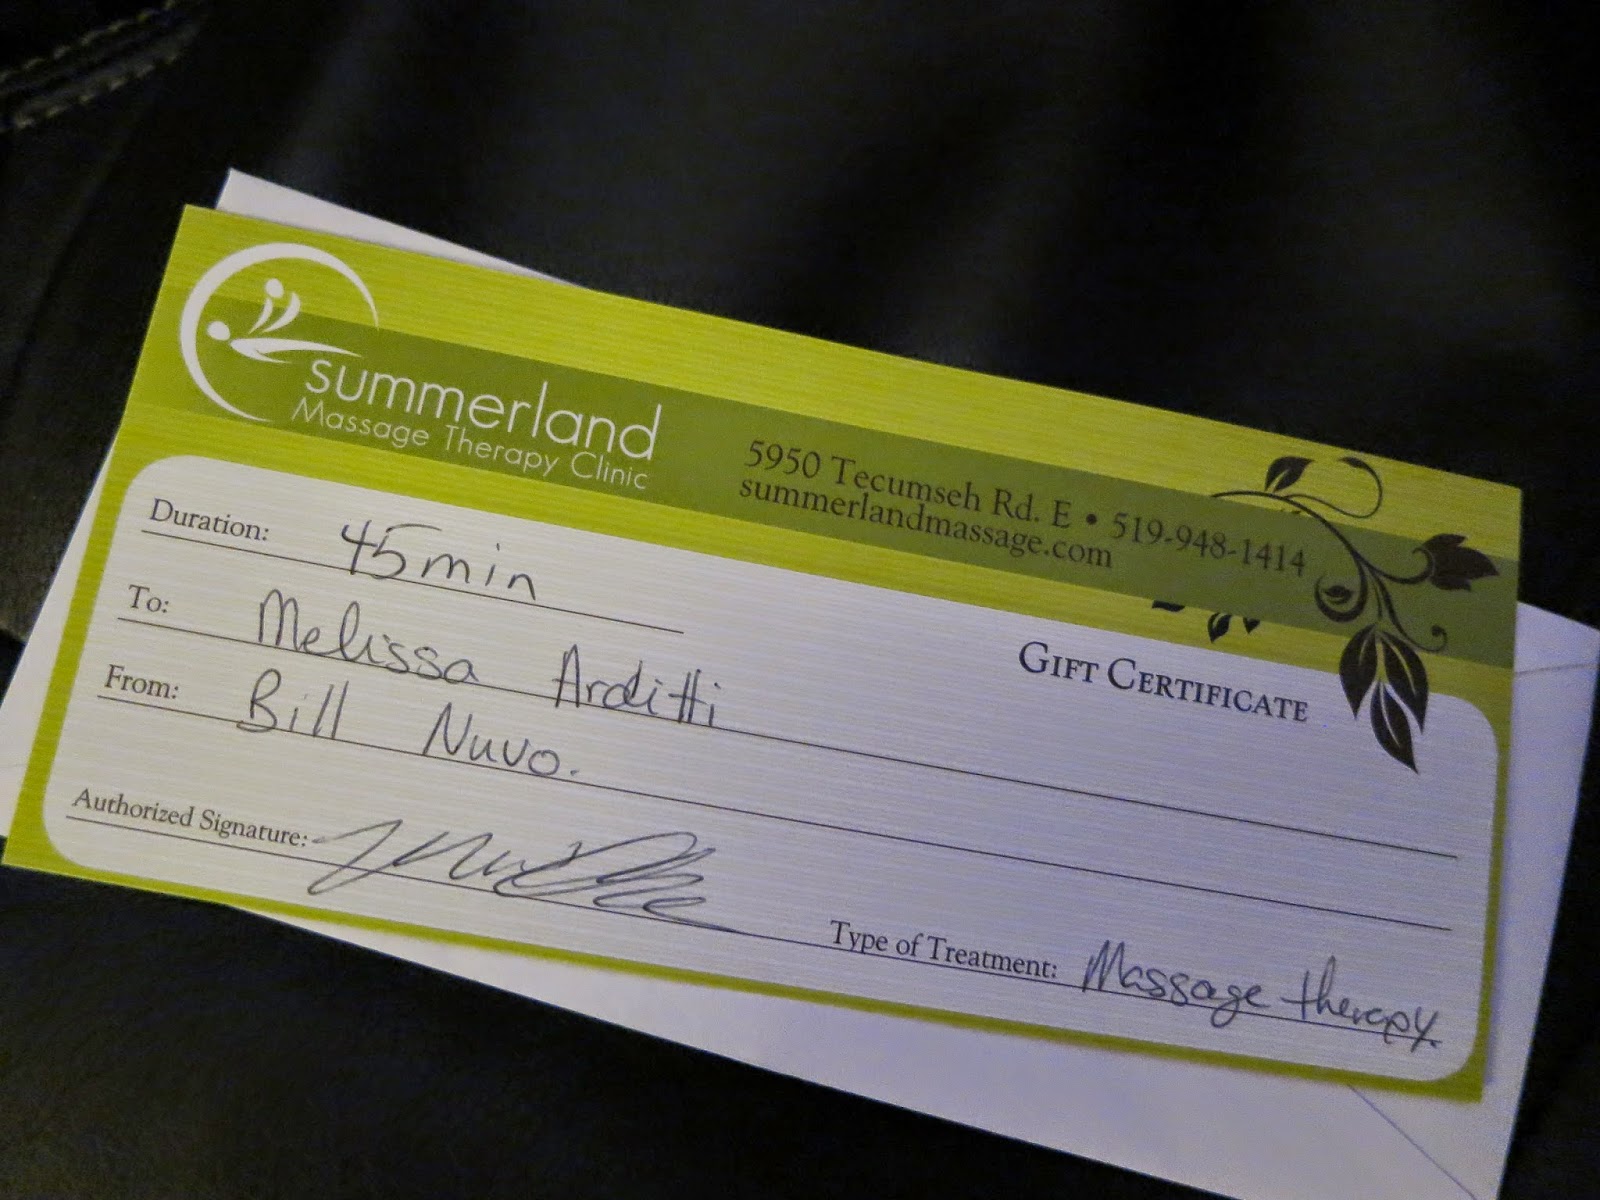 summerland
Massage Therapy Clinic
5950 Tecumseh Rd. E • 519-948-1414
summerlandmassage.com
GIFT CERTIFICATE
Duration: 45min
To: Melissa Arditti
From: Bill Nuvo.
Authorized Signature:
Type of Treatment: Massage therapy.